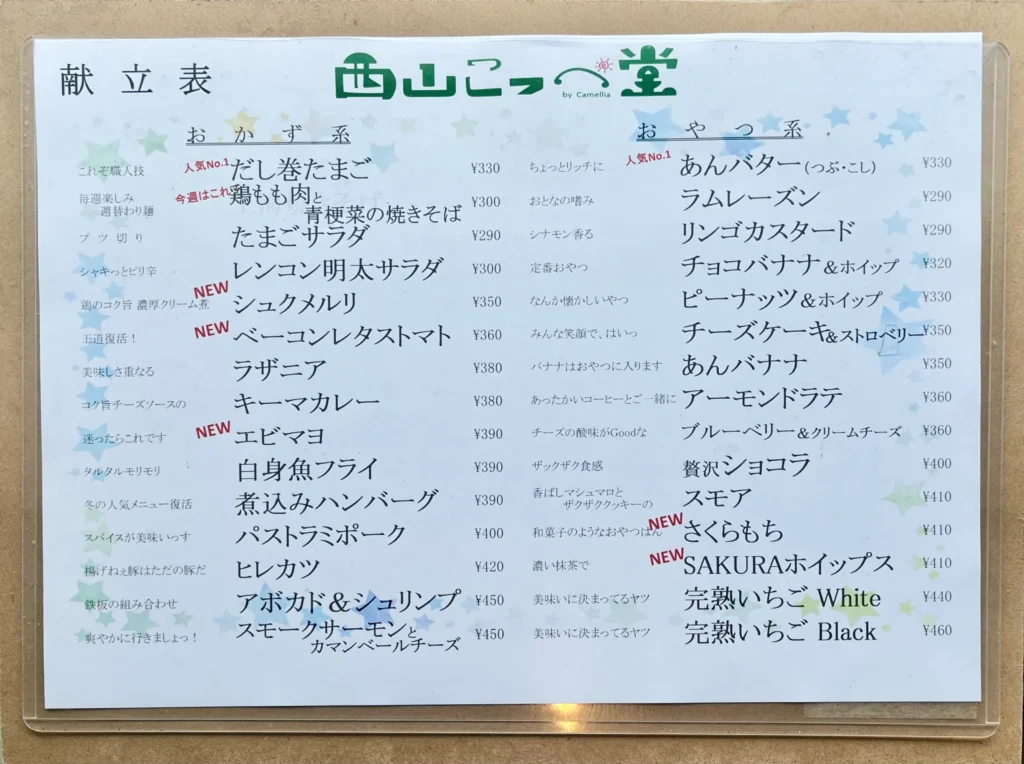 献立表
西山こっぺ堂
by Camellia
おかず系
これぞ職人技 人気No.1 だし巻たまご ¥330
毎週楽しみ 今週はこれ 鶏もも肉と ¥300
週替わり麺 青梗菜の焼きそば
ブツ切り たまごサラダ ¥290
シャキっとピリ辛 レンコン明太サラダ ¥300
鶏のコク旨 濃厚クリーム煮 NEW シュクメルリ ¥350
王道復活！ NEW ベーコンレタストマト ¥360
美味しさ重なる ラザニア ¥380
コク旨チーズソースの キーマカレー ¥380
迷ったらこれです NEW エビマヨ ¥390
タルタルモリモリ 白身魚フライ ¥390
冬の人気メニュー復活 煮込みハンバーグ ¥390
スパイスが美味いっす パストラミポーク ¥400
揚げねぇ豚はただの豚だ ヒレカツ ¥420
鉄板の組み合わせ アボカド＆シュリンプ ¥450
爽やかに行きましょっ！ スモークサーモンと ¥450
カマンベールチーズ
おやつ系
ちょっとリッチに 人気No.1 あんバター(つぶ・こし) ¥330
おとなの嗜み ラムレーズン ¥290
シナモン香る リンゴカスタード ¥290
定番おやつ チョコバナナ＆ホイップ ¥320
なんか懐かしいやつ ピーナッツ＆ホイップ ¥330
みんな笑顔で、はいっ チーズケーキ&ストロベリー ¥350
バナナはおやつに入ります あんバナナ ¥350
あったかいコーヒーとご一緒に アーモンドラテ ¥360
チーズの酸味がGoodな ブルーベリー＆クリームチーズ ¥360
ザックザク食感 贅沢ショコラ ¥400
香ばしマシュマロと スモア ¥410
ザクザククッキーの
和菓子のようなおやつぱん NEW さくらもち ¥410
濃い抹茶で NEW SAKURAホイップス ¥410
美味いに決まってるヤツ 完熟いちご White ¥440
美味いに決まってるヤツ 完熟いちご Black ¥460